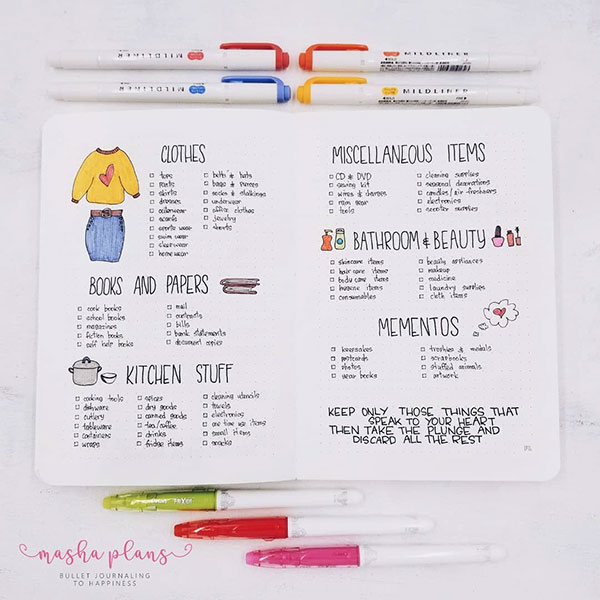 MILDLINER
MILDLINER
MILDLINER
MILDLINER
CLOTHES
tops
pants
skirts
dresses
outerwear
scarfs
sports wear
swim wear
sleepwear
homewear
belts & hats
bags & purses
socks & stockings
underwear
office clothes
jewelry
shorts
BOOKS AND PAPERS
cook books
school books
magazines
fiction books
self help books
mail
contracts
bills
bank statements
document copies
KITCHEN STUFF
cooking tools
dishware
cutlery
tableware
containers
wraps
spices
dry goods
canned goods
tea/coffee
drinks
fridge items
cleaning utensils
towels
electronics
one time use items
small items
snacks
MISCELLANEOUS ITEMS
CD & DVD
sewing kit
wires & devices
rain gear
tools
cleaning supplies
seasonal decorations
candles/air freshners
electronics
scooter supplies
BATHROOM & BEAUTY
skincare items
hair care items
body care items
hygiene items
consumables
beauty appliances
makeup
medicine
laundry supplies
cloth items
MEMENTOS
keepsakes
postcards
photos
year books
trophies & medals
scrapbooks
stuffed animals
artwork
KEEP ONLY THOSE THINGS THAT
SPEAK TO YOUR HEART
THEN TAKE THE PLUNGE AND
DISCARD ALL THE REST
masha plans
BULLET JOURNALING
TO HAPPINESS